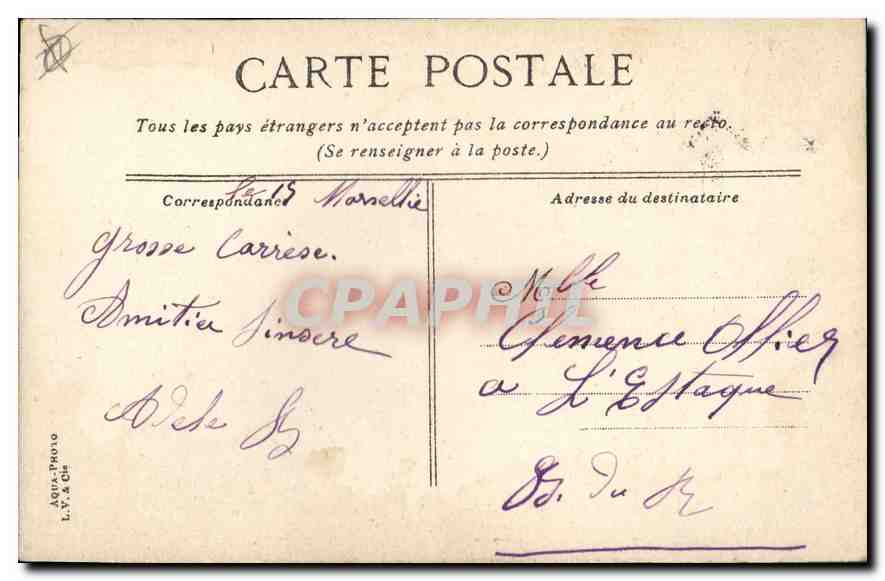 CARTE POSTALE
Tous les pays étrangers n'acceptent pas la correspondance au recto.
(Se renseigner à la poste.)
Correspondance
le 15 Marsellie
Grosse Carrèse.
Amitier Sinsere
Adele
Adresse du destinataire
Mlle
Clemence Ollier
a L'Estaque
B. du R
AQUA-PHOTO
L.V. & Cie
CPAPHIL